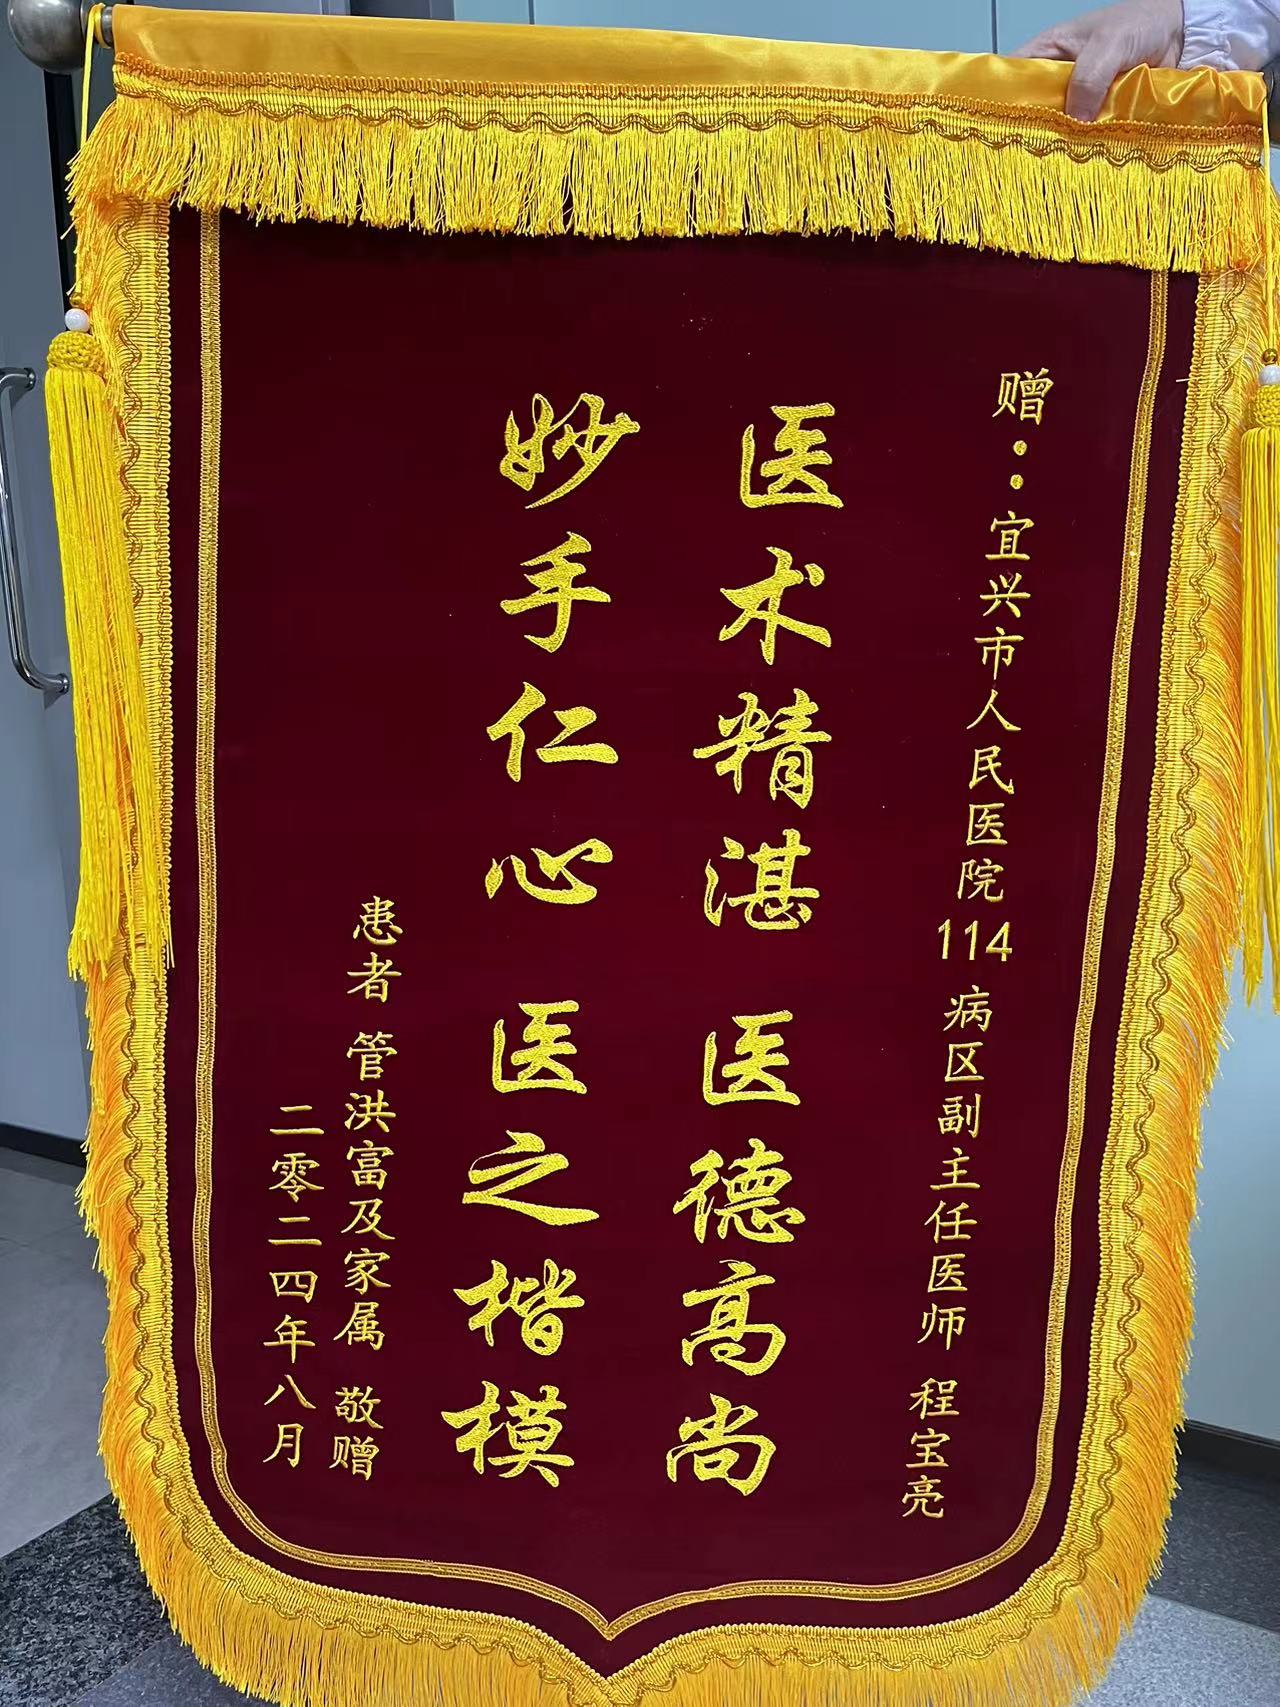 赠：宜兴市人民医院114病区副主任医师 程宝亮
医术精湛 医德高尚
妙手仁心 医之楷模
患者 管洪富及家属 敬赠
二零二四年八月